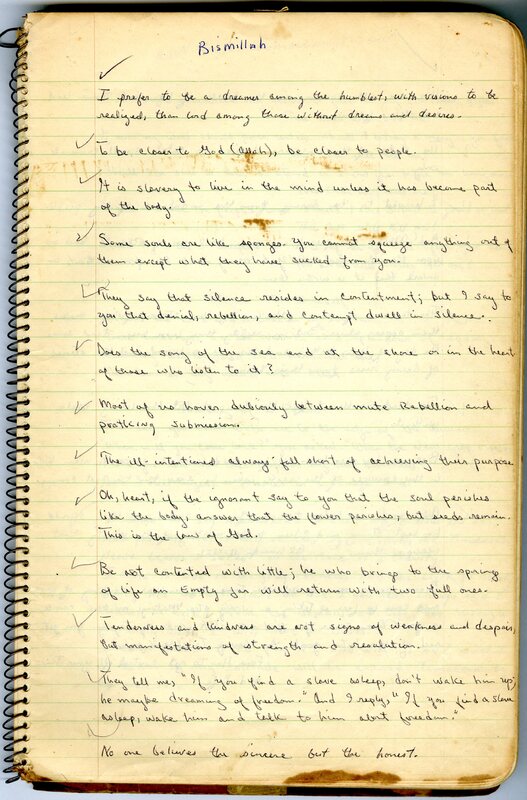 Bismillah
I prefer to be a dreamer among the humblest, with visions to be
realized, than lord among those without dreams and desires.
To be closer to God (Allah), be closer to people.
It is slavery to live in the mind unless it has become part
of the body.
Some souls are like sponges. You cannot squeeze anything out of
them except what they have sucked from you.
They say that silence resides in contentment; but I say to
you that denial, rebellion, and contempt dwell in silence.
Does the song of the sea end at the shore or in the heart
of those who listen to it?
Most of us hover dubiously between mute Rebellion and
prattling submission.
The ill-intentioned always fall short of achieving their purpose
Oh, heart, if the ignorant say to you that the soul perishes
like the body, answer that the flower perishes, but seeds remain.
This is the law of God.
Be not contented with little; he who brings to the springs
of life an Empty jar will return with two full ones.
Tenderness and kindness are not signs of weakness and despair,
but manifestations of strength and resolution.
They tell me, "If you find a slave asleep, don't wake him up;
he maybe dreaming of freedom." And I reply, "If you find a slave
asleep, wake him and talk to him about freedom."
No one believes the sincere but the honest.